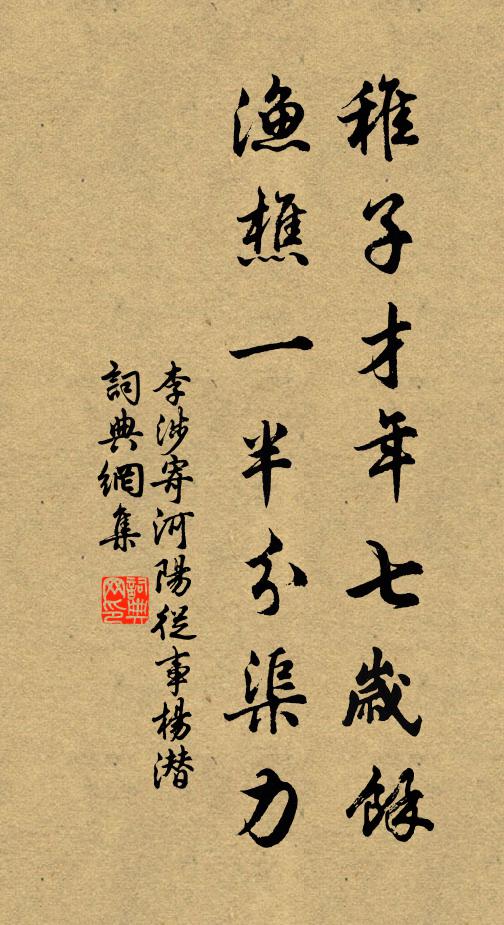 稚子才年七歲餘
漁樵一半分渠力
李涉寄河陽從事楊潛
詞典網集
詞典网印